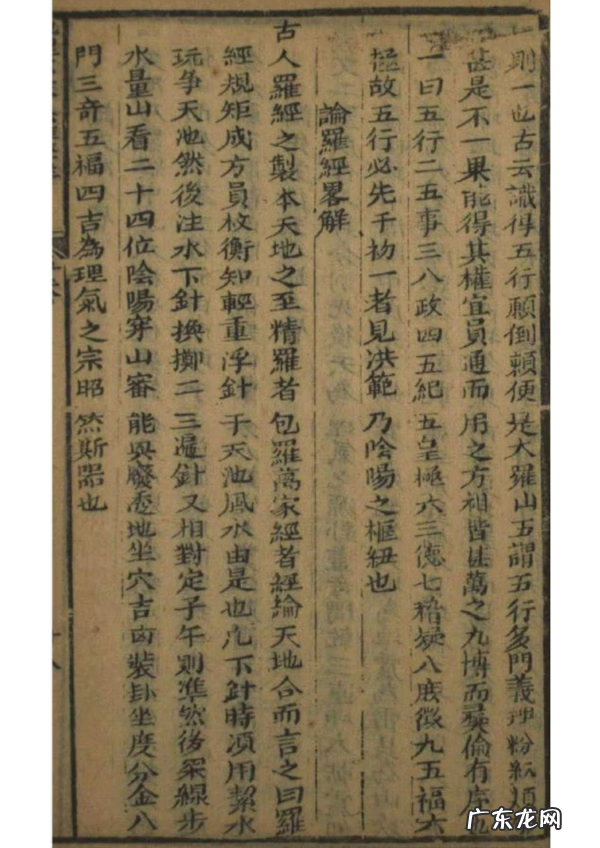 則一也古云識得五行顛倒顛便是大羅山五謂五行多門義理粉紜順
甚是不一果能得其權宜員通而用之方祖皆甚萬之九博而彜倫有序
一曰五行二五事三八政四五紀五皇極六三德七稽疑八庶徵九五福六
極故五行必先于初一者見洪範乃陰陽之樞紐也
論羅經畧解
古人羅經之製本天地之至精羅者包羅萬家經者經綸天地合而言之曰羅
經規矩成方員权衡知輕重浮針于天池風水由是也凡下針時須用絜水
玩爭天池然後注水下針換擲二三遍針又相對定子午則準然後架線步
水量山看二十四位陰陽穿山審能興廢透地坐穴吉凶裝卦坐度分金八
門三奇五福四吉為理氣之宗昭然斯器也
廣东龙网